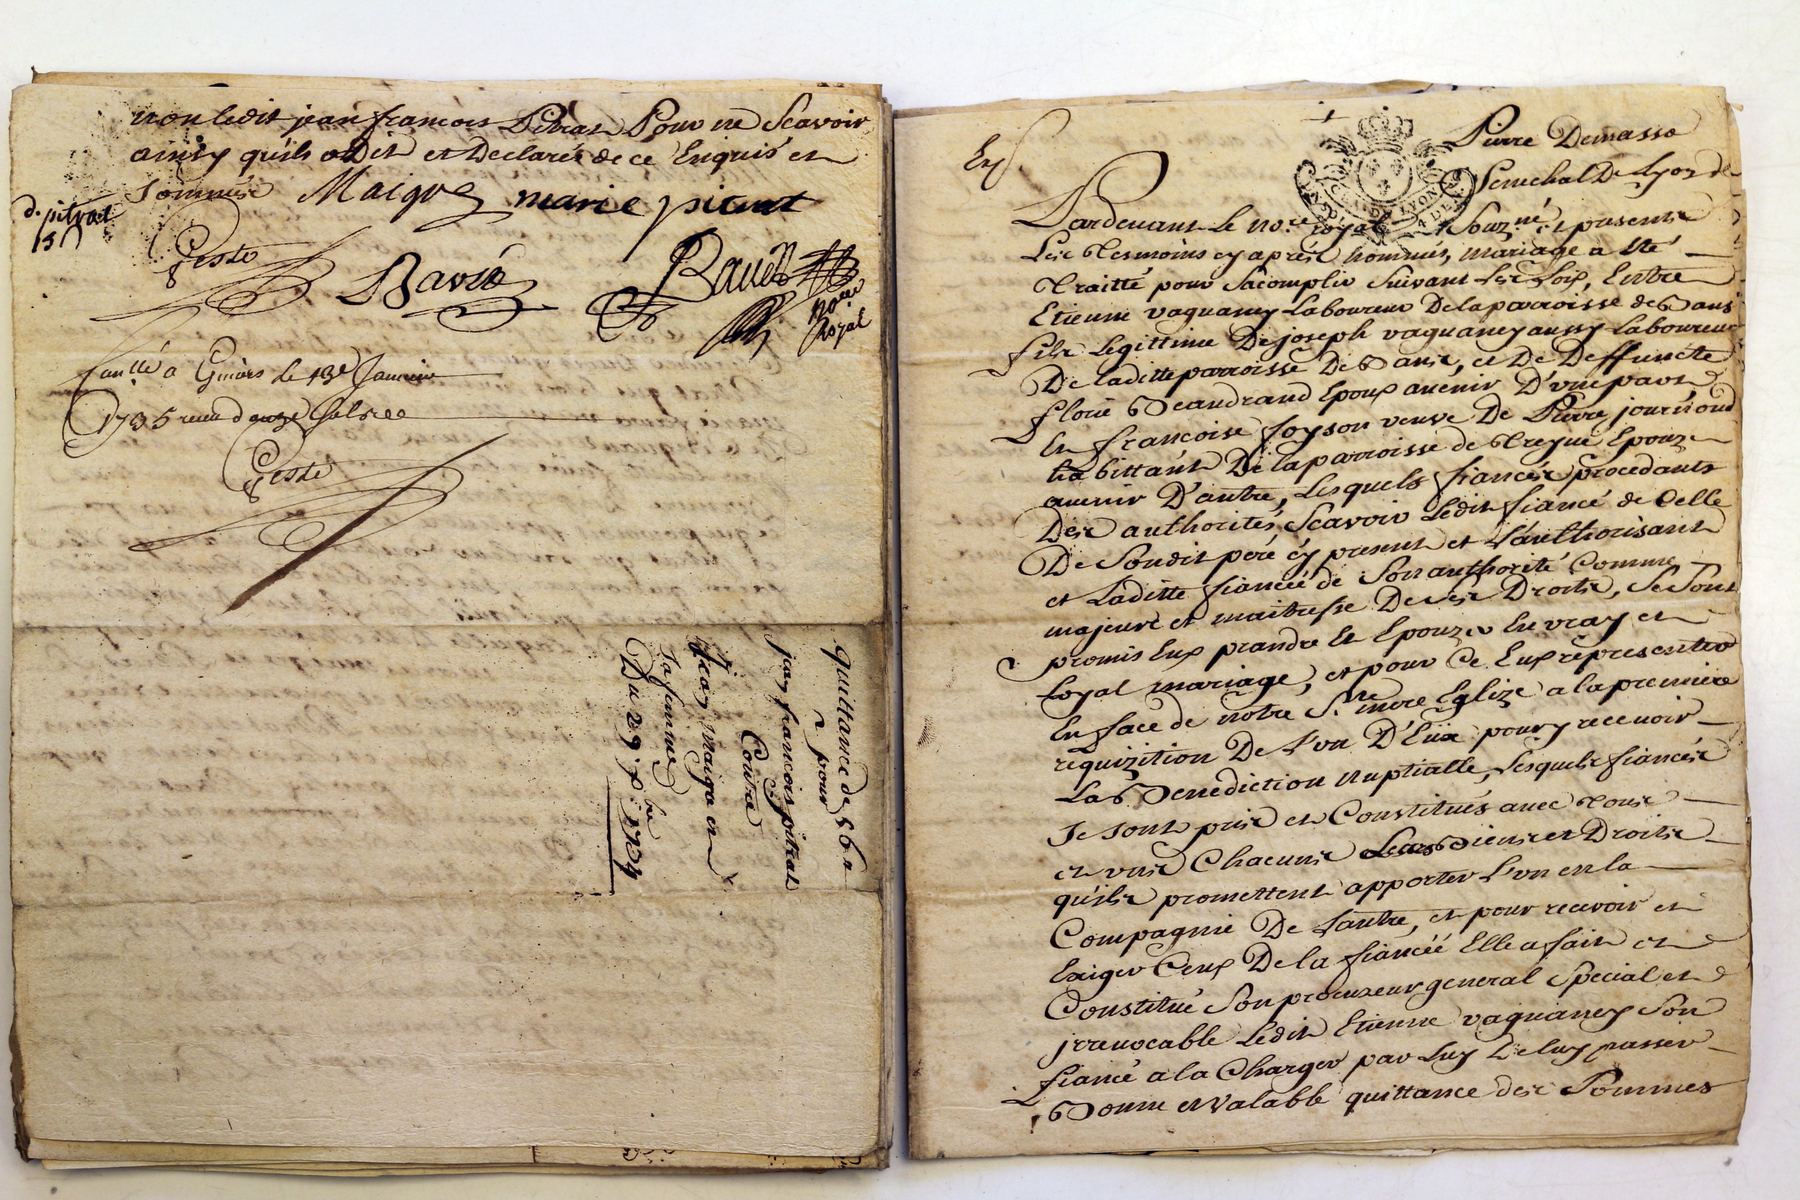 non ledit jean francois Pitrat Pour ne Scavoir
ainsy quils ont Dit et Declarés de ce Enquis et
Sommés Maigre marie pitrat
d. pitrat
Geste
Bavié
Bauet
No.re Royal
Conllé a le 13e Janvier
1735 receu douze sols
Geste
quittance de 56 ll
pour
jean francois pitrat
Contre
jean maigre et
sa femme
Du 29 xbre 1734
Pierre Demasso
Senechal De Lyon
Pardevant le no.re royal Souz.né et presents
Les Tesmoins cy aprés nommés, mariage a êté
Traitté pour Sacomplir Suivant Les Loix, Entre
Etienne vaganey Laboureur De la parroisse de Bans
fils Legittime De joseph vaganey aussy Laboureur
De laditte parroisse De Bans, et De Deffuncte
florie Beaudrand Epoux avenir D'une part
Et francoise foyson veuve De Pierre journoud
habittante De la parroisse de Treyve Epouze
avenir D'autre, Lesquels fiancés procedants
Des authorités, Scavoir Ledit fiancé de Celle
De Soudit pere cy present et L'authorisant
et Laditte fiancée de Son authorité Comme
majeure et maitresse De ses Droits, Se Sont
promis Eux prandre Et Epouzer En vray et
Loyal mariage, et pour Ce Eux representer
En face de notre S.te mere Eglize a la premiere
requizition De L'un D'Eux pour y recevoir
La Benediction nuptialle, Lesquels fiancés
Se sont pris et Constitués avec Tous
et uns Chacuns Leurs Biens et Droits
quils promettent apporter L'un en la
Compagnie De L'autre, et pour recevoir et
Exiger Ceux De la fiancée Elle a fait et
Constitué Son procureur general Special et
jrrevocable Ledit Etienne vaganey Son
fiancé a la Charger par Luy De luy passer
Bonne et Valable quittance des Sommes